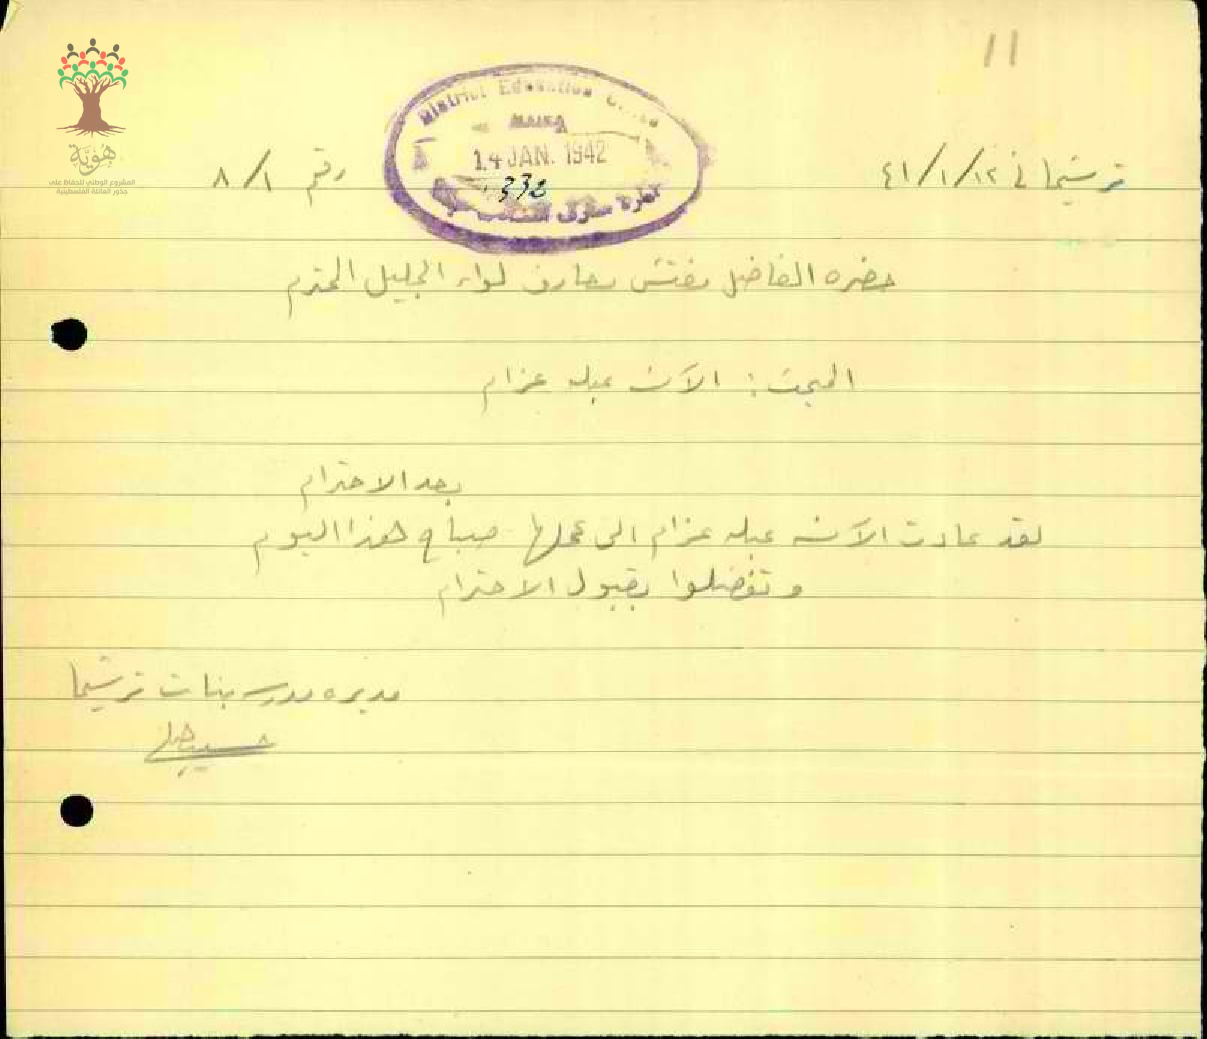 11
هَوِيَّة
المشروع الوطني للحفاظ على
جذور العائلة الفلسطينية
District Education
HAIFA
14 JAN. 1942
332
ترشيحا في ١٢/١/٤١
رقم ٨/١
حضرة الفاضل مفتش معارف لواء الجليل المحترم
المبحث : الآنسة عبله عزام
بعد الاحترام
لقد عادت الآنسة عبله عزام الى عملها صباح هذا اليوم
وتفضلوا بقبول الاحترام
مديرة مدرسة بنات ترشيحا